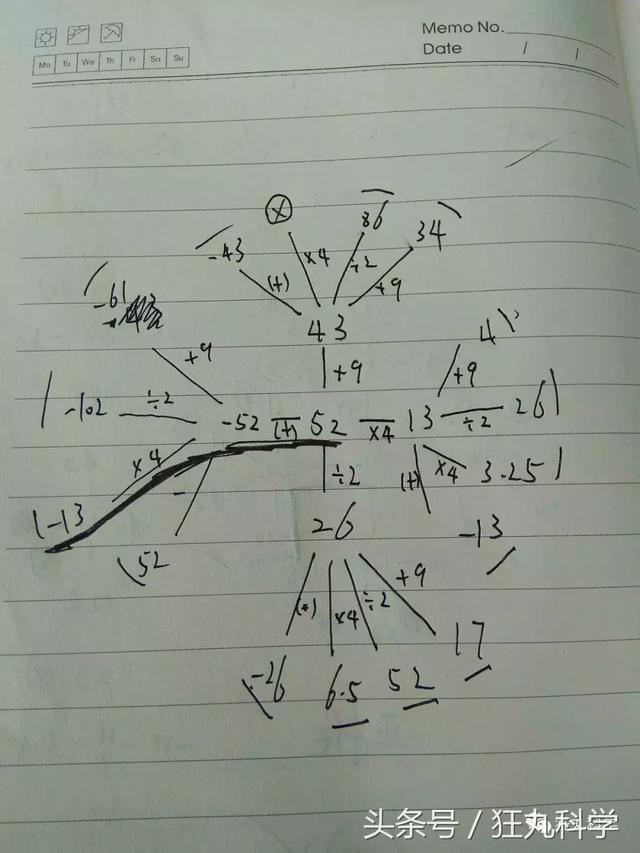 Memo No.
Date / /
Mo Tu We Th Fr Sa Su
86
-43 34
(+) ×4 ÷2 +9
-61 43 4
+9 +9 +9
-102 ÷2 -52 (+) 52 ×4 13 ÷2 26
×4 - ÷2 (+) ×4 3.25
-13 26 -13
52
(+) ×4 ÷2 +9
17
-26 6.5 52
头条号 / 狂丸科学